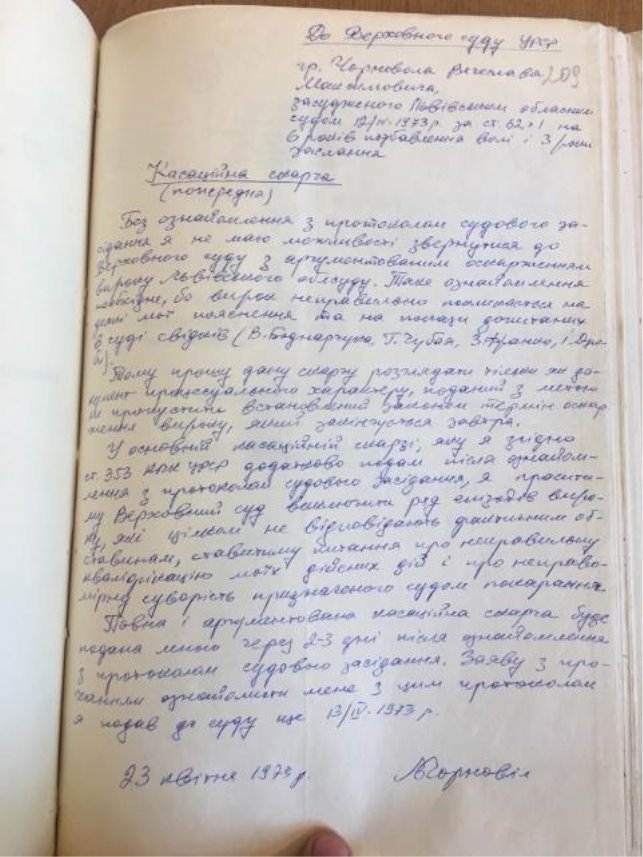 До Верховного суду УРСР
209
гр. Чорновола Вячеслава
Максимовича,
засудженого Львівським обласним
судом 12/IV.1973р. за ст. 62ч1 на
6 років позбавлення волі і 3 роки
заслання
Касаційна скарга
(попередня)
Без ознайомлення з протоколом судового за-
сідання я не маю можливості звернутися до
Верховного суду з аргументованим оскарженням
вироку Львівського облсуду. Таке ознайомлення
необхідне, бо вирок неправильно посилається на
деякі мої пояснення та на покази допитаних
в суді свідків (В. Боднарчука, Г. Чубая, З. Франко, І. Дзю-
би).
Тому прошу дану скаргу розглядати тільки як до-
кумент процесуального характеру, поданий з метою
не пропустити встановлений законом термін оскар
ження вироку, який закінчується завтра.
У основній касаційній скарзі, яку я згідно
ст. 353 КПК УРСР додатково подам після ознайом-
лення з протоколом судового засідання, я проси-
му Верховний суд виключити ряд епізодів виро-
ку, які цілком не відповідають фактичним об-
ставинам, ставитиму питання про неправильну
кваліфікацію моїх дійсних дій і про неправо-
мірну суворість призначеного судом покарання.
Повна і аргументована касаційна скарга буде
подана мною через 2-3 дні після ознайомлення
з протоколом судового засідання. Заяву з про-
ханням ознайомити мене з цим протоколом
я подав до суду ще 13/IV.1973 р.
23 квітня 1973 р.
Чорновіл